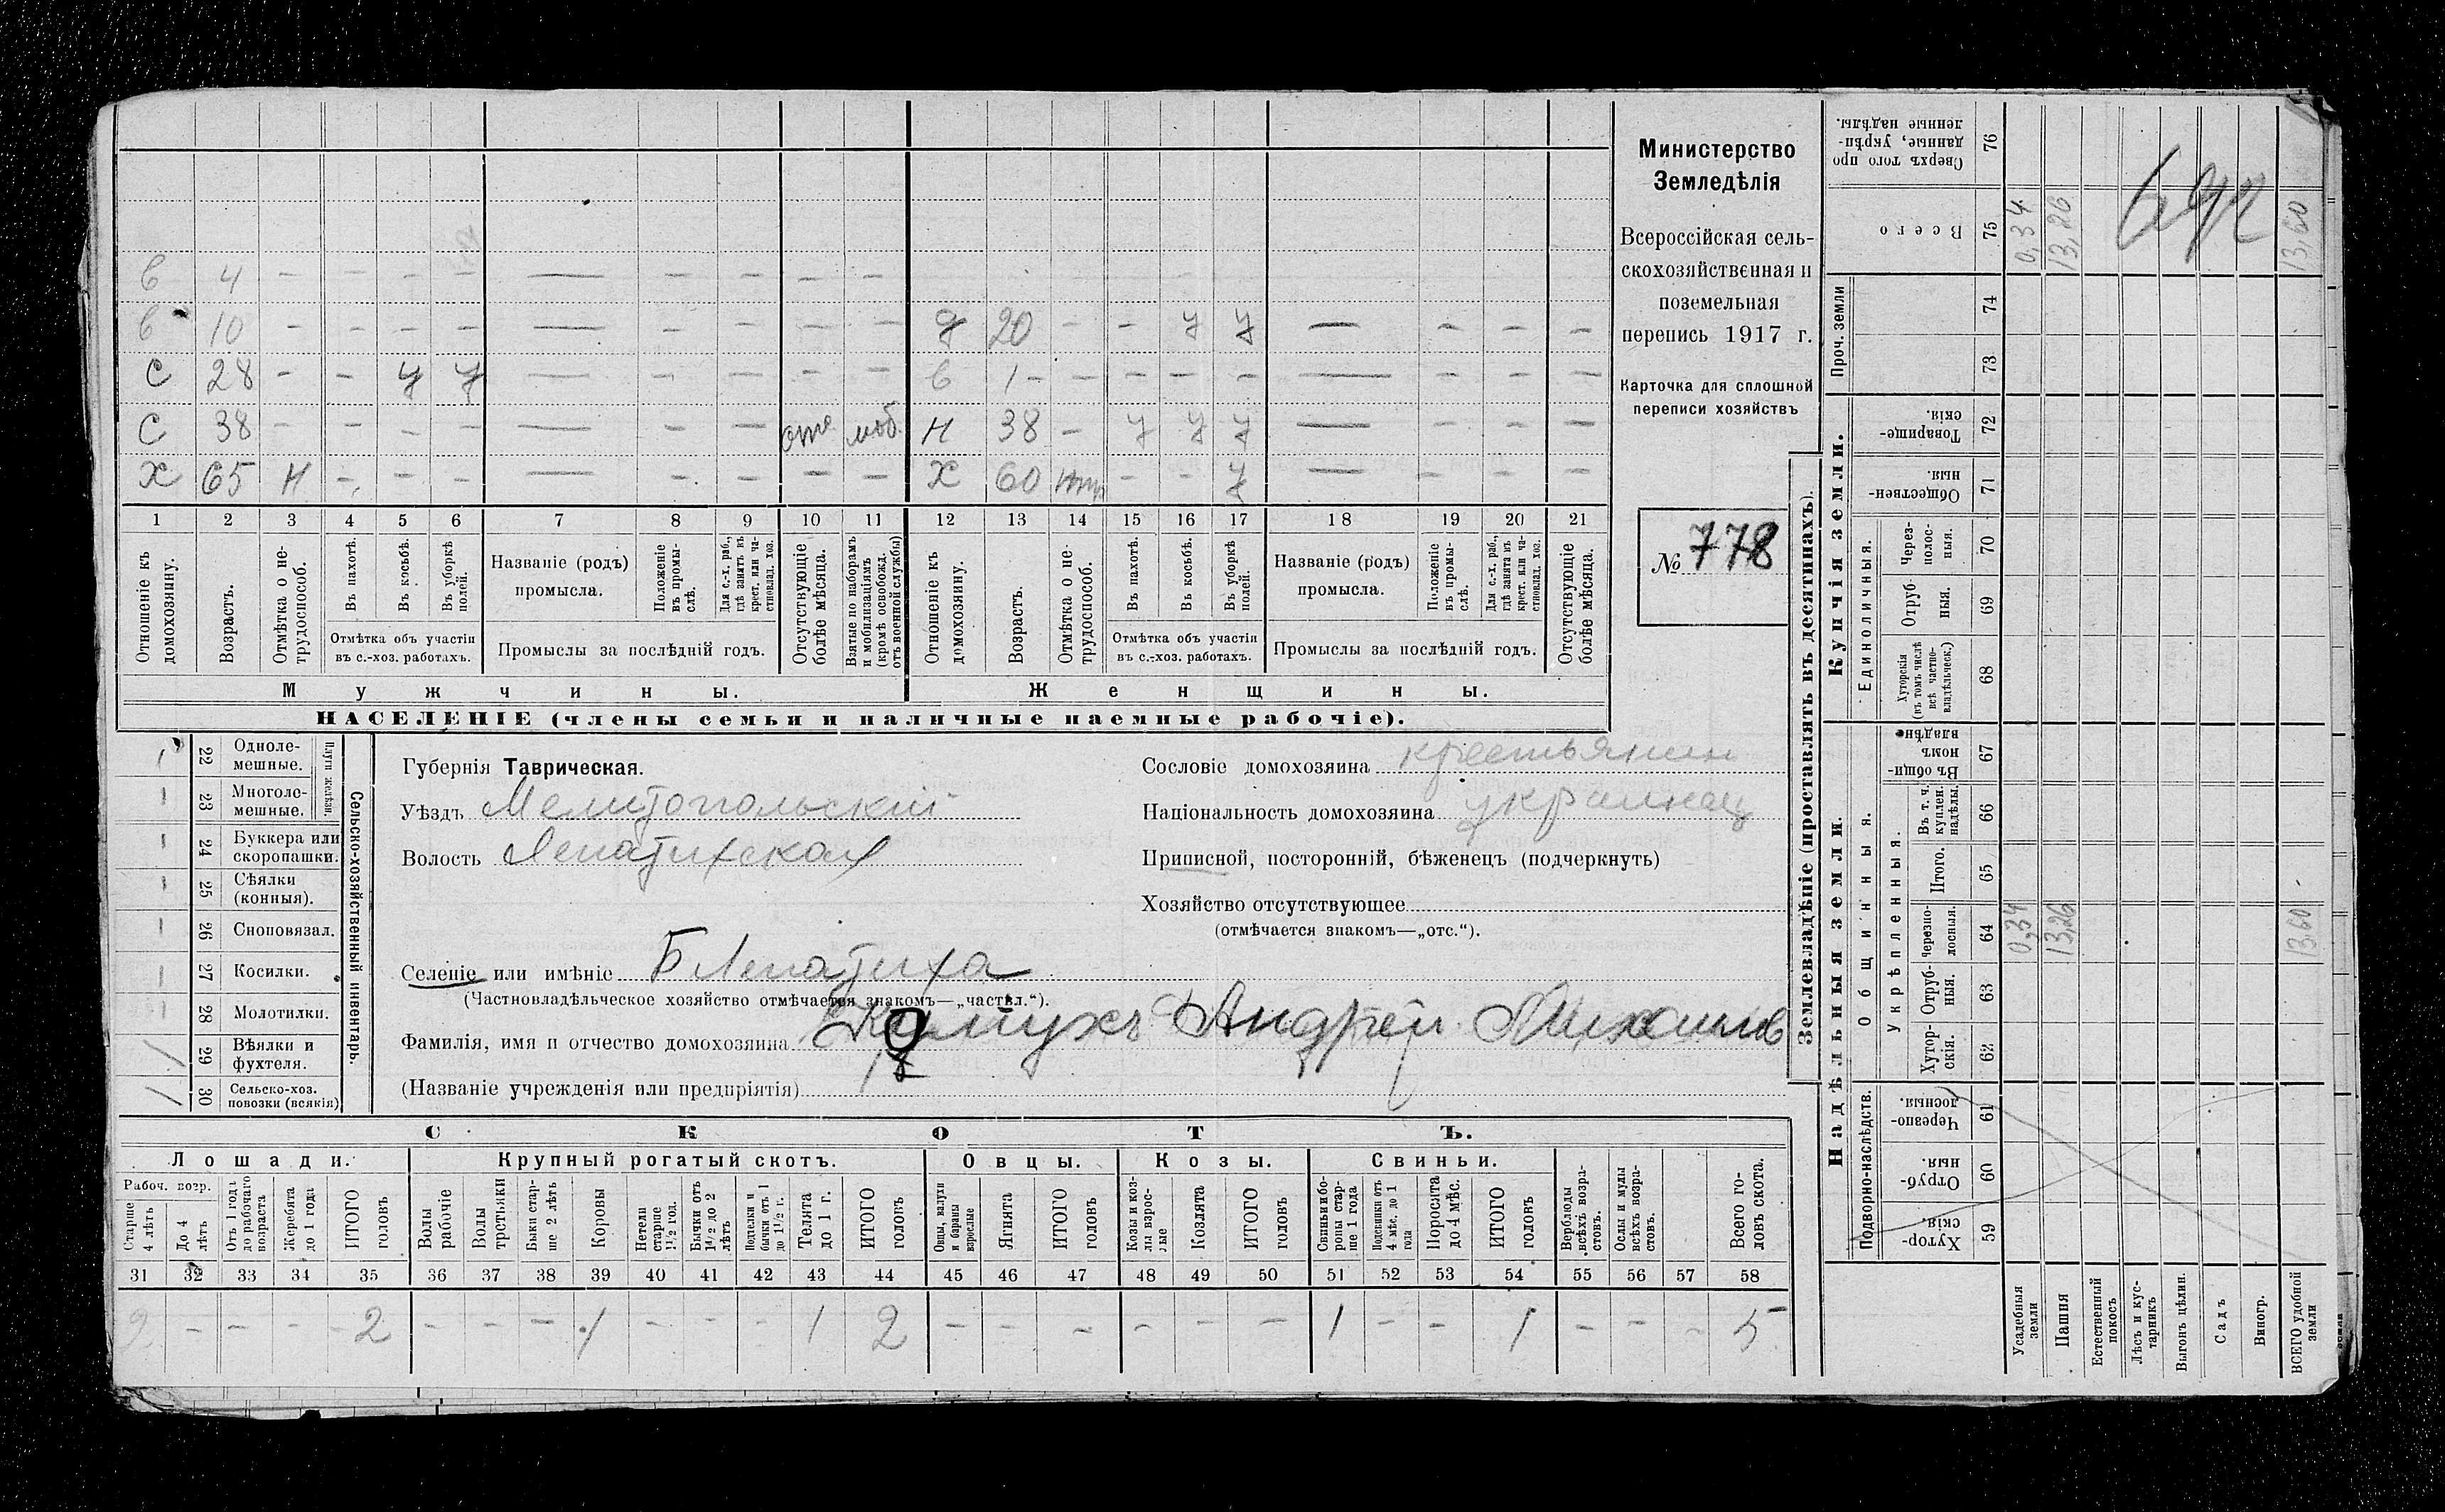 в 4 - - - - — - - - -
в 10 - - - - — - - - - д 20 - - У У — - - -
С 28 - - У У — - - - - в 1 - - - - - — - - -
С 38 - - - - — - - отс моб. Н 38 - У У У — - - -
Х 65 Н - - - — - - - - Х 60 - - У — - - -
1 2 3 4 5 6 7 8 9 10 11 12 13 14 15 16 17 18 19 20 21
Отношеніе къ домохозяину.
Возрастъ.
Отмѣтка о не-
трудоспособ.
Въ пахотѣ.
Въ косьбѣ.
Въ уборкѣ
полей.
Отмѣтка объ участіи
въ с.-хоз. работахъ.
Названіе (родъ)
промысла.
Положеніе
въ промы-
слѣ.
Для с.-х. раб.,
гдѣ занятъ въ
крест. или ча-
стновлад. хоз.
Промыслы за послѣдній годъ.
Отсутствующіе
болѣе мѣсяца.
Взятые по наборамъ
и мобилизаціямъ
(кромѣ освобожд.
отъ военной службы)
Отношеніе къ
домохозяину.
Возрастъ.
Отмѣтка о не-
трудоспособ.
Въ пахотѣ.
Въ косьбѣ.
Въ уборкѣ
полей.
Отмѣтка объ участіи
въ с.-хоз. работахъ.
Названіе (родъ)
промысла.
Положеніе
въ промы-
слѣ.
Для с.-х. раб.,
гдѣ занята въ
крест. или ча-
стновлад. хоз.
Промыслы за послѣдній годъ.
Отсутствующіе
болѣе мѣсяца.
Мужчины. Женщины.
НАСЕЛЕНІЕ (члены семьи и наличные наемные рабочіе).
Министерство
Земледѣлія
Всероссійская сель-
скохозяйственная и
поземельная
перепись 1917 г.
Карточка для сплошной
переписи хозяйствъ
№ 778
Плуги желѣзн.
1 22 Одноле-
мешные.
- 23 Многоле-
мешные.
- 24 Буккера или
скоропашки.
- 25 Сѣялки
(конныя).
- 26 Сноповязал.
- 27 Косилки.
- 28 Молотилки.
1 29 Вѣялки и
фухтеля.
1 30 Сельско-хоз.
повозки (всякія)
Сельско-хозяйственный инвентарь.
Губернія Таврическая.
Уѣздъ Мелитопольскій
Волость Лепатихская
Селеніе или имѣніе Б Лепатиха
(Частновладѣльческое хозяйство отмѣчается знакомъ—„частвл.“).
Фамилія, имя и отчество домохозяина Андрей Михаилов
(Названіе учрежденія или предпріятія)
Сословіе домохозяина крестьянин
Національность домохозяина украинец
Приписной, посторонній, бѣженецъ (подчеркнуть)
Хозяйство отсутствующее
(отмѣчается знакомъ—„отс.“).
СКОТЪ.
Лошади. Крупный рогатый скотъ. Овцы. Козы. Свиньи.
Рабоч. возр.
Старше
4 лѣтъ
До 4
лѣтъ
Отъ 1 года
до рабочаго
возраста
Жеребята
до 1 года
ИТОГО
головъ
Волы
рабочіе
Волы
третьяки
Быки стар-
ше 2 лѣтъ
Коровы
Нетели
старше
1 1/2 год.
Бычки отъ
1 1/2 до 2
лѣтъ
Подтелки и
бычки отъ 1
до 1 1/2 г.
Телята
до 1 г.
ИТОГО
головъ
Овцы, валухи
и бараны
взрослые
Ягнята
ИТОГО
головъ
Козы и коз-
лы взрос-
лые
Козлята
ИТОГО
головъ
Свиньи и бо-
ровы стар-
ше 1 года
Подсвинки отъ
4 мѣс. до 1
года
Поросята
до 4 мѣс.
ИТОГО
головъ
Верблюды
всѣхъ возра-
стовъ.
Ослы и мулы
всѣхъ возра-
стовъ.
Всего го-
ловъ скота.
31 32 33 34 35 36 37 38 39 40 41 42 43 44 45 46 47 48 49 50 51 52 53 54 55 56 57 58
2 - - - 2 - - - 1 - - - 1 2 - - - - - - 1 - - 1 - - - 5
Землевладѣніе (проставлять въ десятинахъ).
Купчія земли.
Надѣльныя земли.
Сверхъ того про
данные, укрѣп-
ленные надѣлы.
76
Всего
75
0,34 13,26 13,60
Проч. земли
74
73
Товарище-
скія.
72
Обществен-
ныя
71
Единоличныя.
Через-
полос-
ныя.
70
Отруб
ныя.
69
Хуторскія
(въ томъ числѣ
всѣ частно-
владѣльческ.)
68
Общинныя.
Въ общи-
номъ
владѣн.
67
Укрѣпленныя.
Въ т. ч.
куплен.
надѣлы.
66
Итого.
65
Черезпо-
лосныя.
64
0,34 13,26 13,60
Отруб-
ныя.
63
Хутор-
скія.
62
Подворно-наслѣдств.
Черезпо-
лосныя.
61
Отруб-
ныя.
60
Хутор-
скія.
59
Усадебныя
земли
Пашня
Естественный
покосъ
Лѣсъ и кус-
тарникъ
Выгонъ цѣлин.
Садъ
Виногр.
ВСЕГО удобной
земли